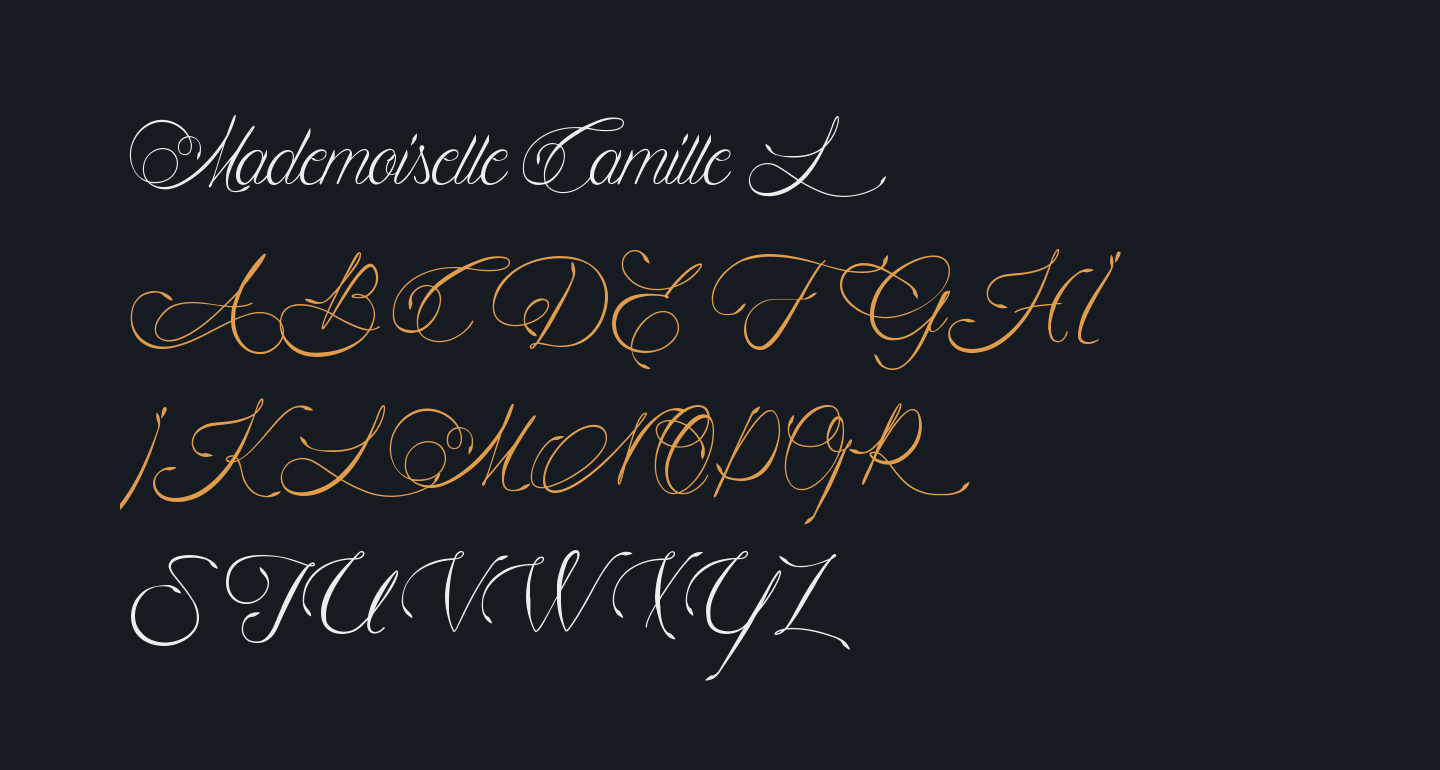 Mademoiselle Camille L
A B C D E F G H I
J K L M N O P Q R
S T U V W X Y Z